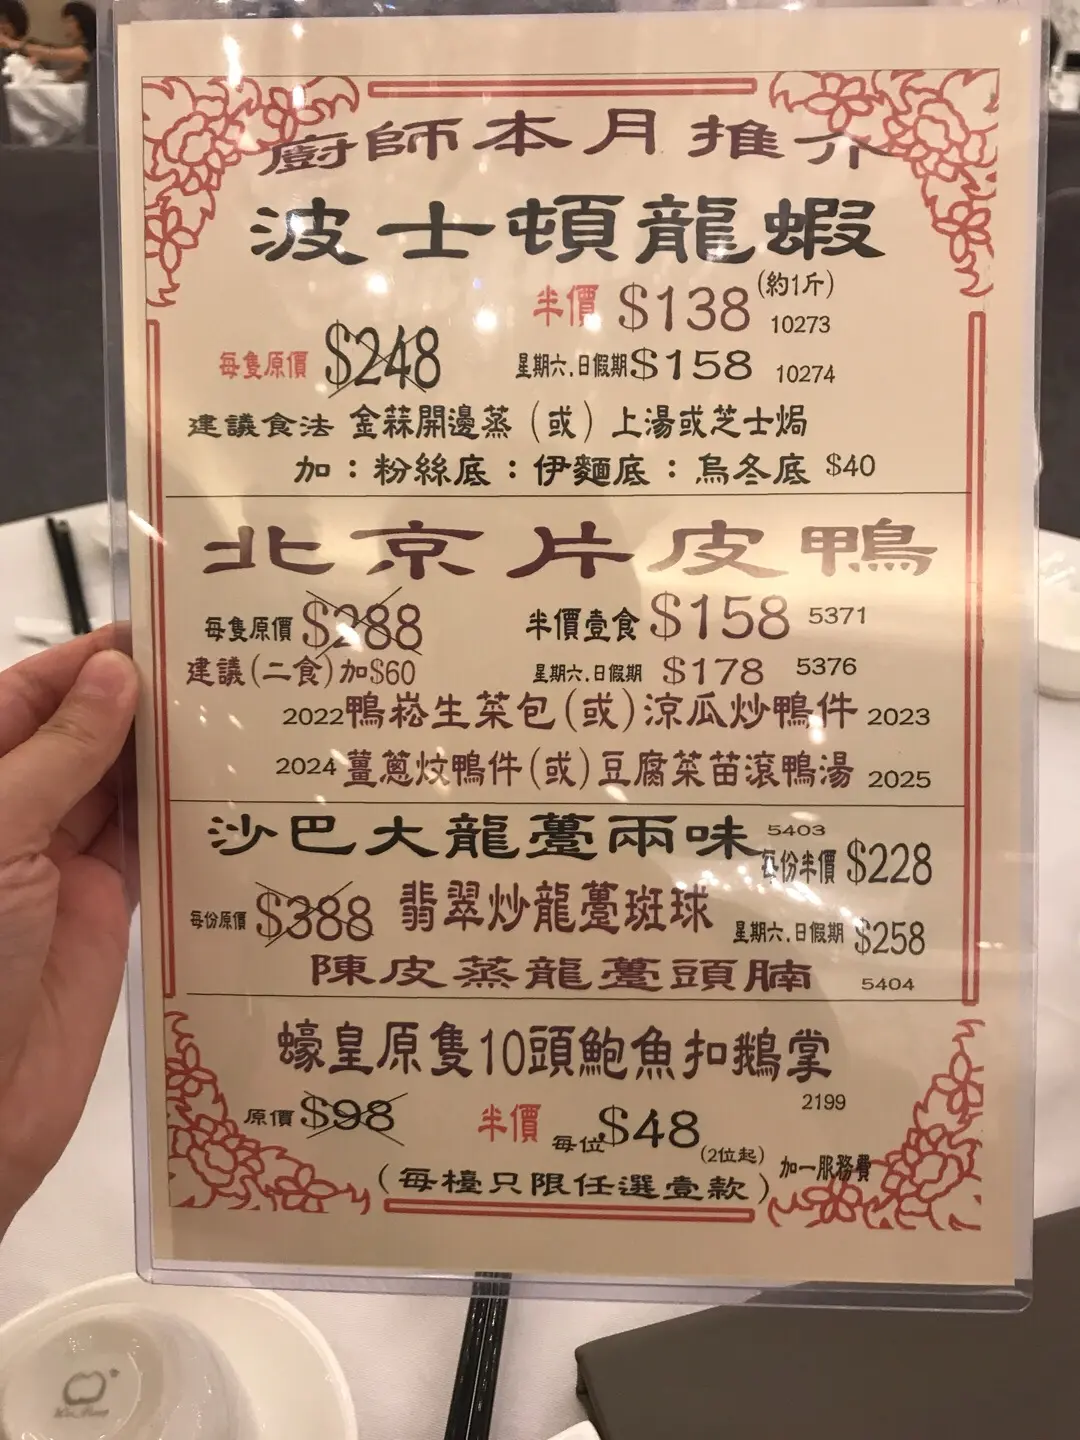 廚師本月推介
波士頓龍蝦
半價 $138 (約1斤) 10273
每隻原價 $248
星期六.日假期 $158 10274
建議食法 金蒜開邊蒸 (或) 上湯或芝士焗
加：粉絲底：伊麵底：烏冬底 $40
北京片皮鴨
每隻原價 $288 半價壹食 $158 5371
建議(二食)加$60 星期六.日假期 $178 5376
2022 鴨崧生菜包(或)涼瓜炒鴨件 2023
2024 薑蔥炆鴨件(或)豆腐菜苗滾鴨湯 2025
沙巴大龍躉兩味 5403
每份半價 $228
每份原價 $388 翡翠炒龍躉斑球
星期六.日假期 $258
陳皮蒸龍躉頭腩 5404
蠔皇原隻10頭鮑魚扣鵝掌
2199
原價 $98 半價 每位 $48 (2位起)
加一服務費
(每檯只限任選壹款)